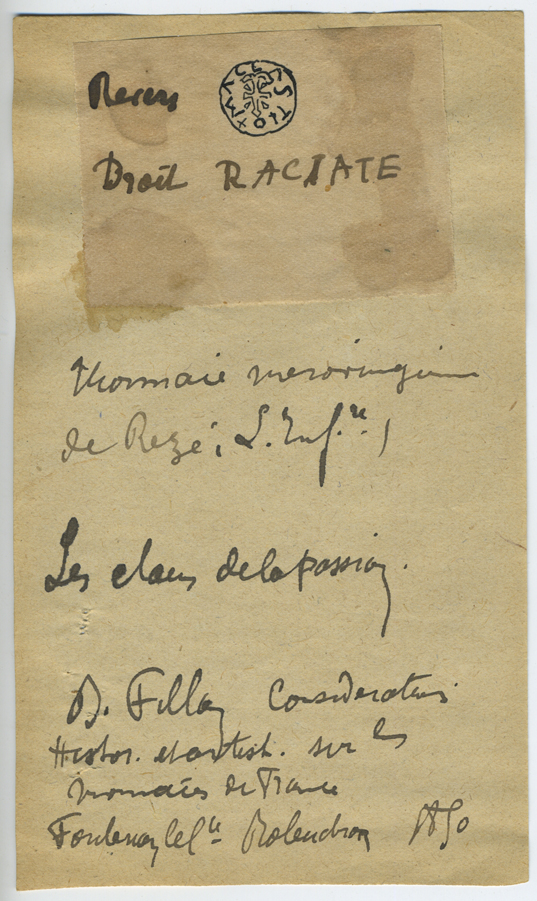 Revers
Droit RACIATE
Monnaie merovingienne
de Rezé, L. Inf.re
Les clous de la passion.
B. Fillon Considerations
Histor. et artist. sur les
monnaies de France
Fontenay le Cte Robuchon